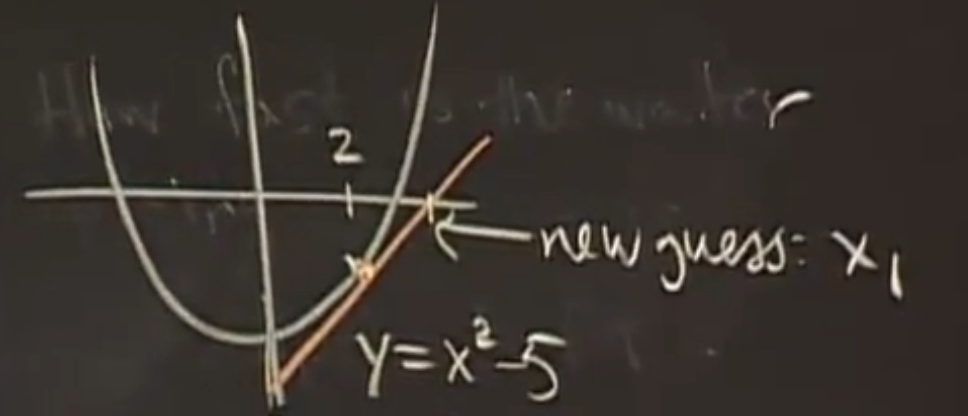 How fast is the water
2
new guess: x₁
y=x²-5